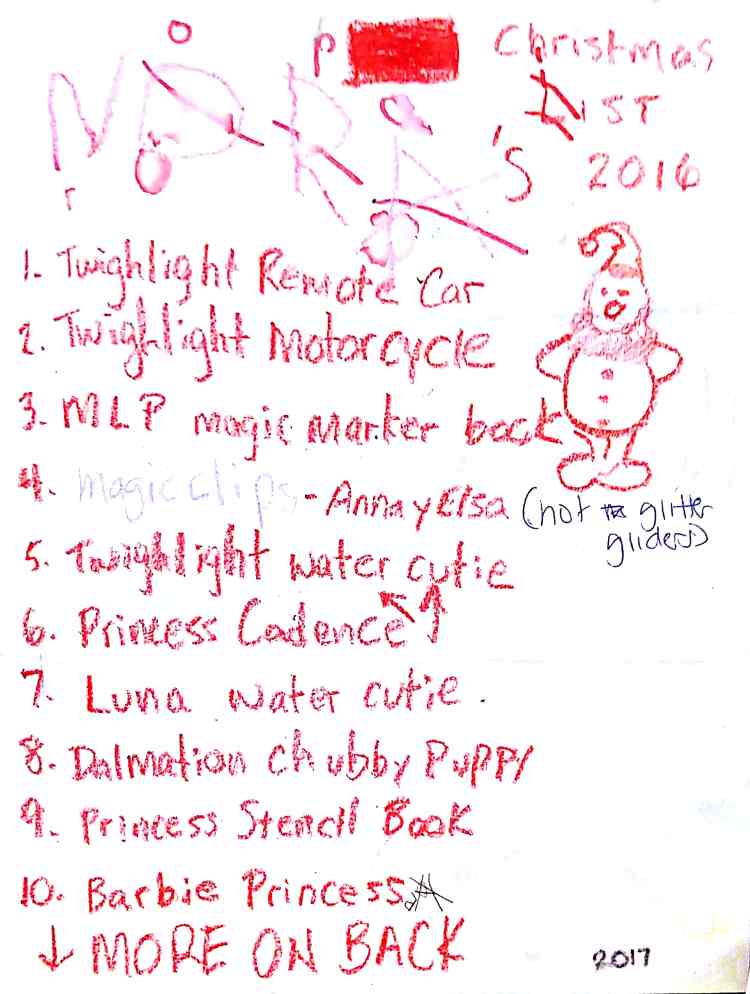 NORA'S
P Christmas
LIST
2016
1. Twighlight Remote Car
2. Twighlight Motorcycle
3. MLP magic Marker book
4. magic clips - Anna y Elsa (not glitter
gliders)
5. Twighlight water cutie
6. Princess Cadence
7. Luna water cutie.
8. Dalmation chubby Puppy
9. Princess Stencil Book
10. Barbie Princess
↓ MORE ON BACK
2017